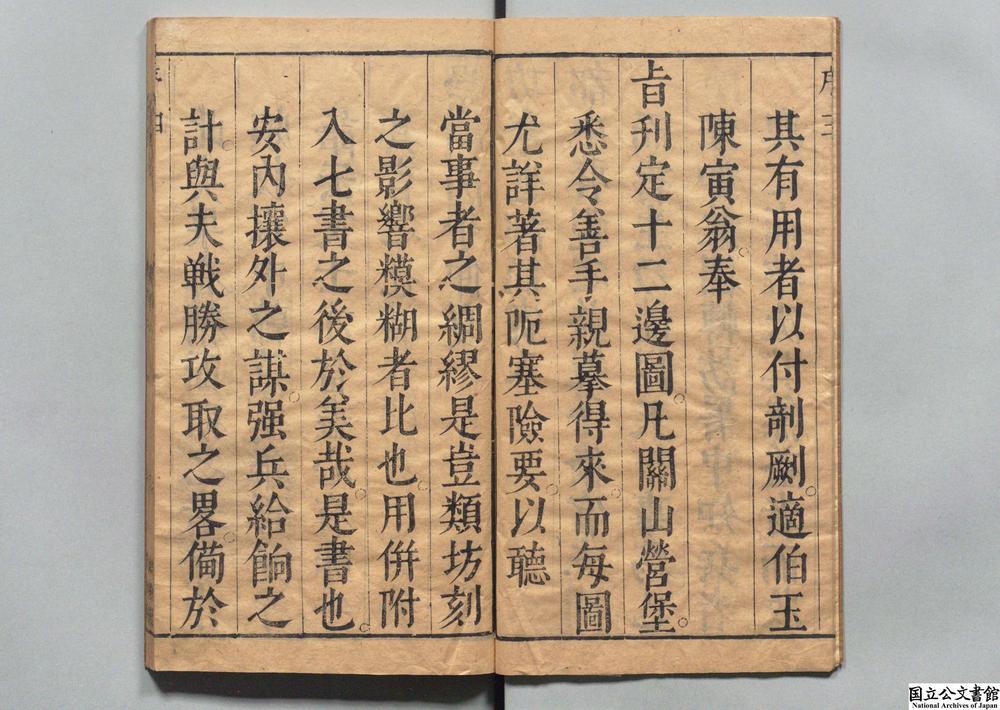 序 三
其有用者以付剞劂適伯玉
陳寅翁奉
㫖刊定十二邊圖凡關山營堡
悉令善手親摹得來而每圖
尤詳著其阨塞險要以聽
當事者之綢繆是豈類坊刻
之影響糢糊者比也用併附
入七書之後於美哉是書也
安內攘外之謀强兵給餉之
計與夫戦勝攻取之畧備於
序 四
国立公文書館
National Archives of Japan